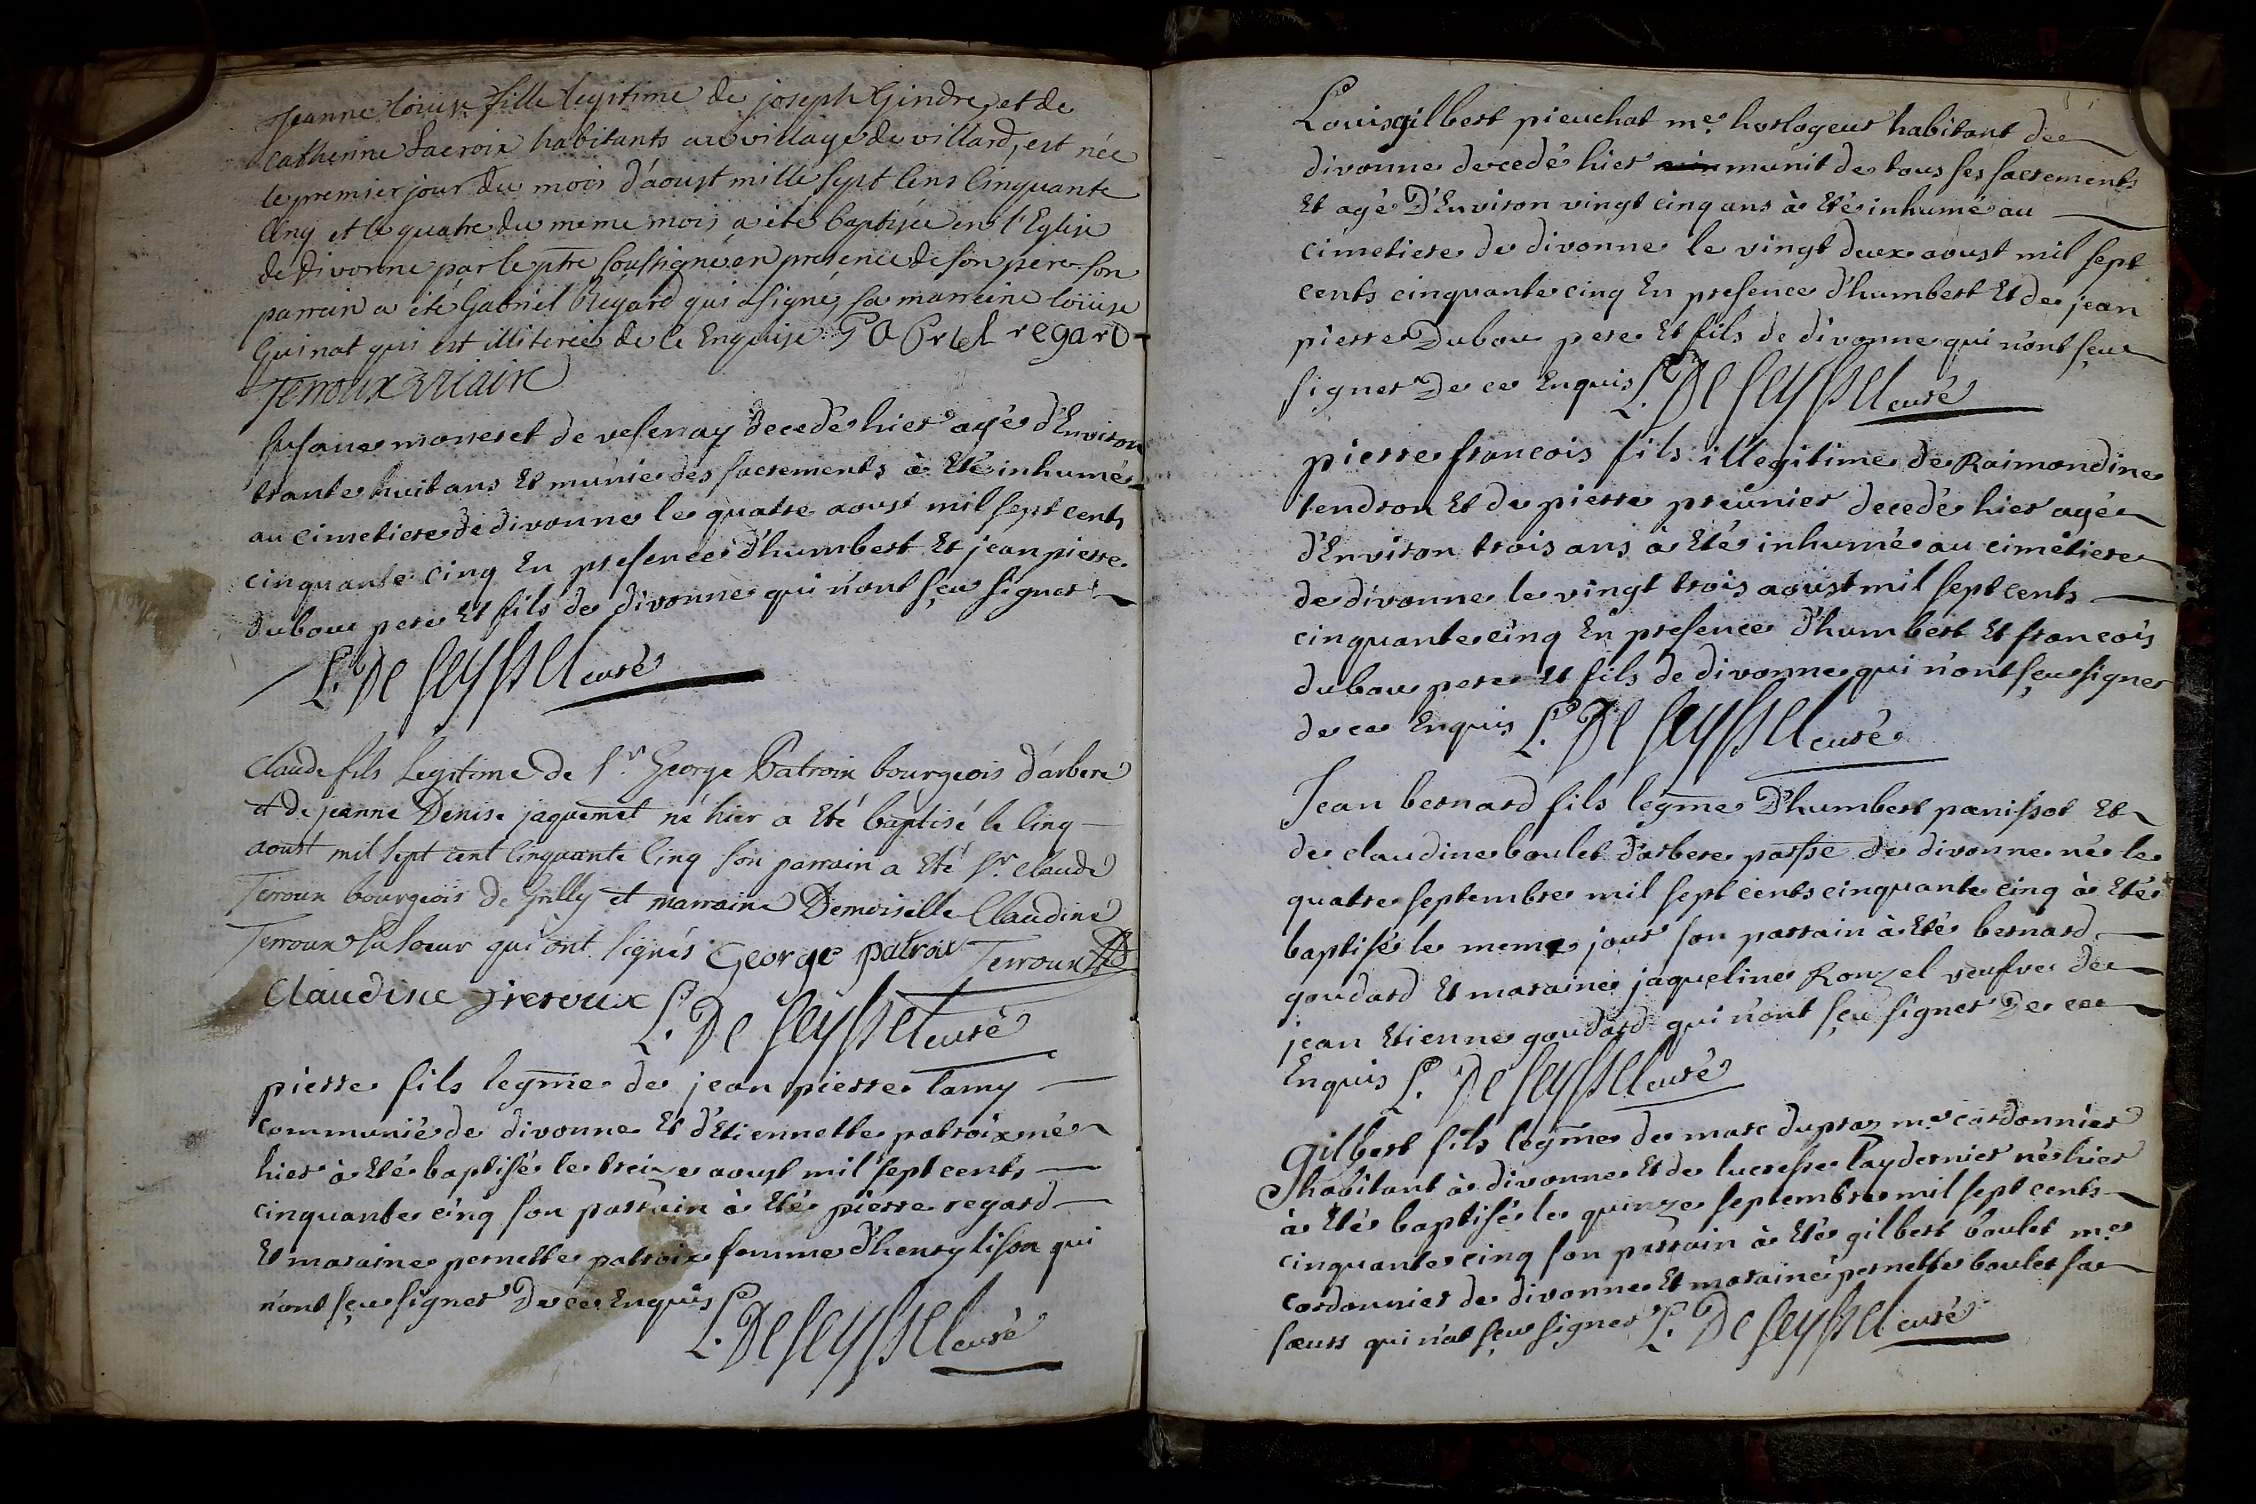 Jeanne Loüise fille legitime de joseph Gindre, et de
catherine Lacroix habitants au village de villard, est née
le premier jour du mois d'áoust mille sept cens cinquante
cinq et le quatre du meme mois a eté baptisée en l'Eglise
de divonne par le ptre soussigné en presence de son pere son
parrein a été Gabriel Regard qui a signé, sa marreine loüise
Guinat qui est illiterée de ce enquise. GaBriel regard
Terroux vicaire
susane moneret de vesenay decedée hier agée d'Environ
trante huit ans Et munie des sacrements à Eté inhumée
au cimetiere de divonne le quatre aoust mil sept cents
cinquante cinq En presence d'humbert Et jean pierre
dubou pere Et fils de divonne qui n'ont sçeu signer
L. De Seyssel curé
Claude fils Legitime de Sr. George Patroix bourgeois d'arbere
et de jeanne Denise jaquemet né hier a Eté baptisé le Cinq
aoust mil sept cent Cinquante Cinq son parrain a Eté Sr. Claude
Terroux bourgeois de Grilly et marraine Demoiselle Claudine
Terroux sa soeur qui ont signés George patroix Terroux
Claudine Treroux L. De Seyssel curé
pierre fils legme de jean pierre lamy
communié de divonne Et d'Etiennette patroix né
hier à Eté baptisé le treize aoust mil sept cents
cinquante cinq son parrain à Eté pierre regard
Et maraine pernette patroix femme d'henry lison qui
n'ont sçeu signer De ce Enquis L. De Seyssel curé
Louis gilbert pieuchat me. horlogeur habitant de
divonne decedé hier munit de tous ses sacrements
Et agé D'Environ vingt cinq ans à Eté inhumé au
cimetiere de divonne le vingt deux aoust mil sept
cents cinquante cinq En presence d'humbert Et de jean
pierre Dubou pere Et fils de divonne qui n'ont sçeu
signer De ce Enquis L. De Seyssel curé
pierre francois fils illegitime de Raimondine
tendron Et de pierre preunier decedé hier agé
d'Environ trois ans à Eté inhumé au cimetiere
de divonne le vingt trois aoust mil sept cents
cinquante cinq En presence d'humbert Et francois
dubou pere Et fils de divonne qui n'ont sçeu signer
de ce Enquis L. De Seyssel curé
Jean bernard fils legme D'humbert panissot Et
de claudine boulet d'arbere parsse de divonne né le
quatre septembre mil sept cents cinquante cinq à Eté
baptisé le meme jour son parrain à Eté bernard
goudard Et maraine jaqueline Ronzel veufve de
jean Etienne goudard qui n'ont sçeu signer De ce
Enquis L. De Seyssel curé
Gilbert fils legme de marc dupraz me cordonnier
habitant à divonne Et de lucresse laydernier né hier
à Eté baptisé le quinze septembre mil sept cents
cinquante cinq son parrain à Eté gilbert boulet me
cordonnier de divonne Et maraine pernette boulet sa
soeurs qui n'at sçeu signer L. De Seyssel curé